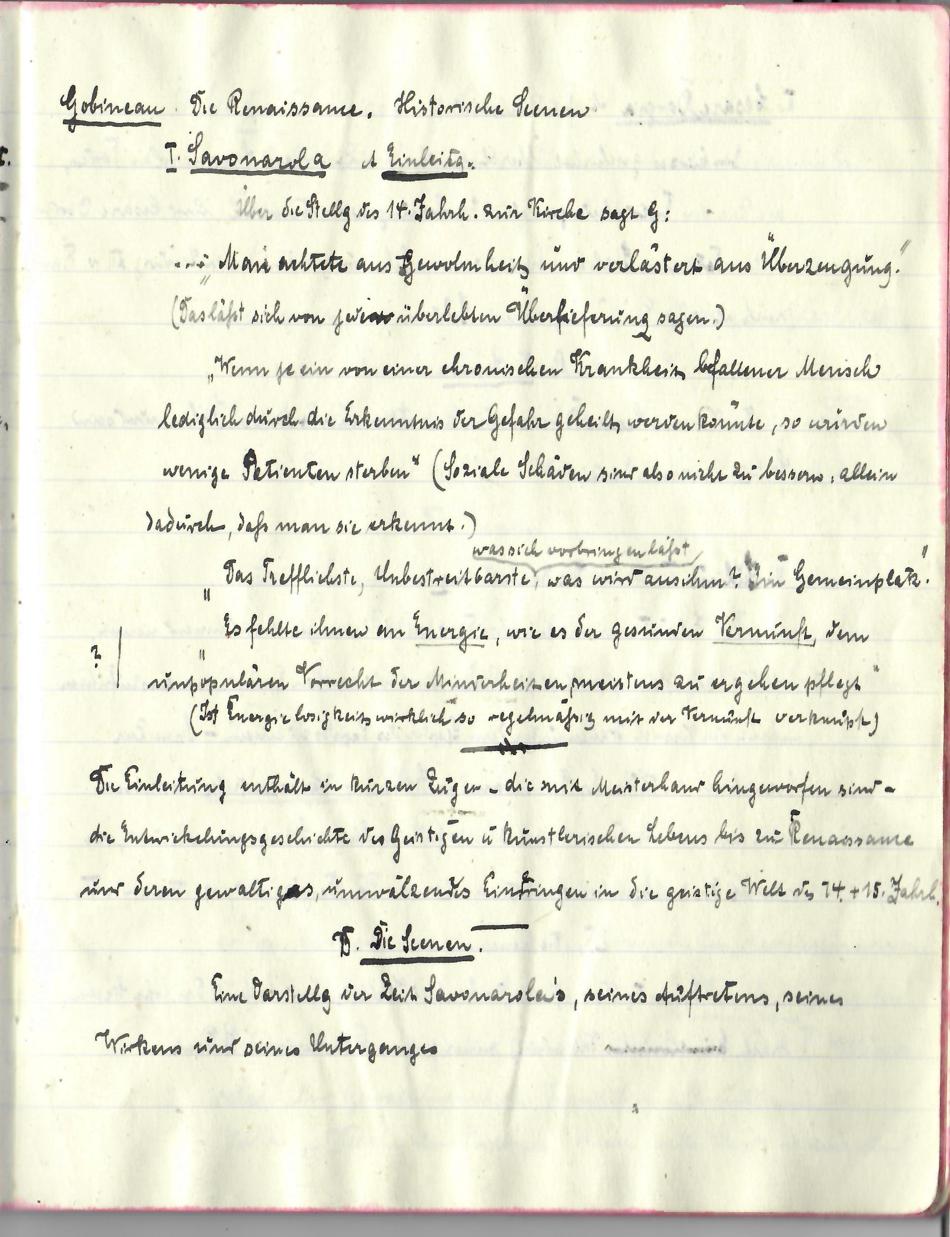 Gobineau. Die Renaissance. Historische Scenen
I. Savonarola A Einleitg.
Über die Stellg des 14. Jahrh. zur Kirche sagt G:
... „Man achtete aus Gewohnheit und verlästert aus Überzeugung."
(Das läßt sich von jeder überlebten Überlieferung sagen.)
„Wenn je ein von einer chronischen Krankheit befallener Mensch
lediglich durch die Erkenntnis der Gefahr geheilt werden könnte, so würden
wenige Patienten sterben" (Soziale Schäden sind also nicht zu bessern, allein
dadurch, daß man sie erkennt.)
was sich vorbringen läßt,
„Das Trefflichste, Unbestreitbarste, was wird aus ihm? Ein Gemeinplatz."
„Es fehlte ihnen an Energie, wie es der gesunden Vernunft, dem
? unpopulären Vorrecht der Minderheiten, meistens zu ergehen pflegt"
(Ist Energielosigkeit wirklich so regelmäßig mit der Vernunft verknüpft)
Die Einleitung enthält in kurzen Zügen – die mit Meisterhand hingeworfen sind –
die Entwickelungsgeschichte des Geistigen u künstlerischen Lebens bis zu Renaissance
und deren gewaltiges, umwälzendes Eindringen in die geistige Welt des 14. + 15. Jahrh.
B. Die Scenen.
Eine Darstellg der Zeit Savonarola's, seines Auftretens, seines
Wirkens und seines Unterganges